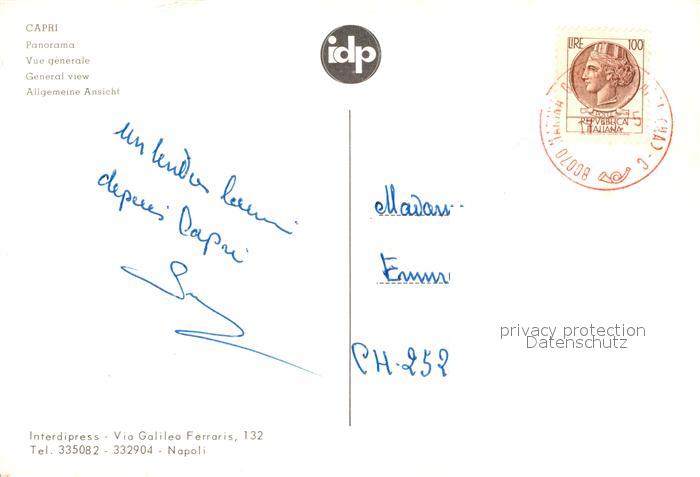 CAPRI
Panorama
Vue générale
General view
Allgemeine Ansicht
idp
LIRE 100
POSTE
REPVBBLICA
ITALIANA
80070 MARINA
(NA) - C
un tendre
depuis Capri
Madam
CH-252
privacy protection
Datenschutz
Interdipress - Via Galileo Ferraris, 132
Tel. 335082 - 332904 - Napoli